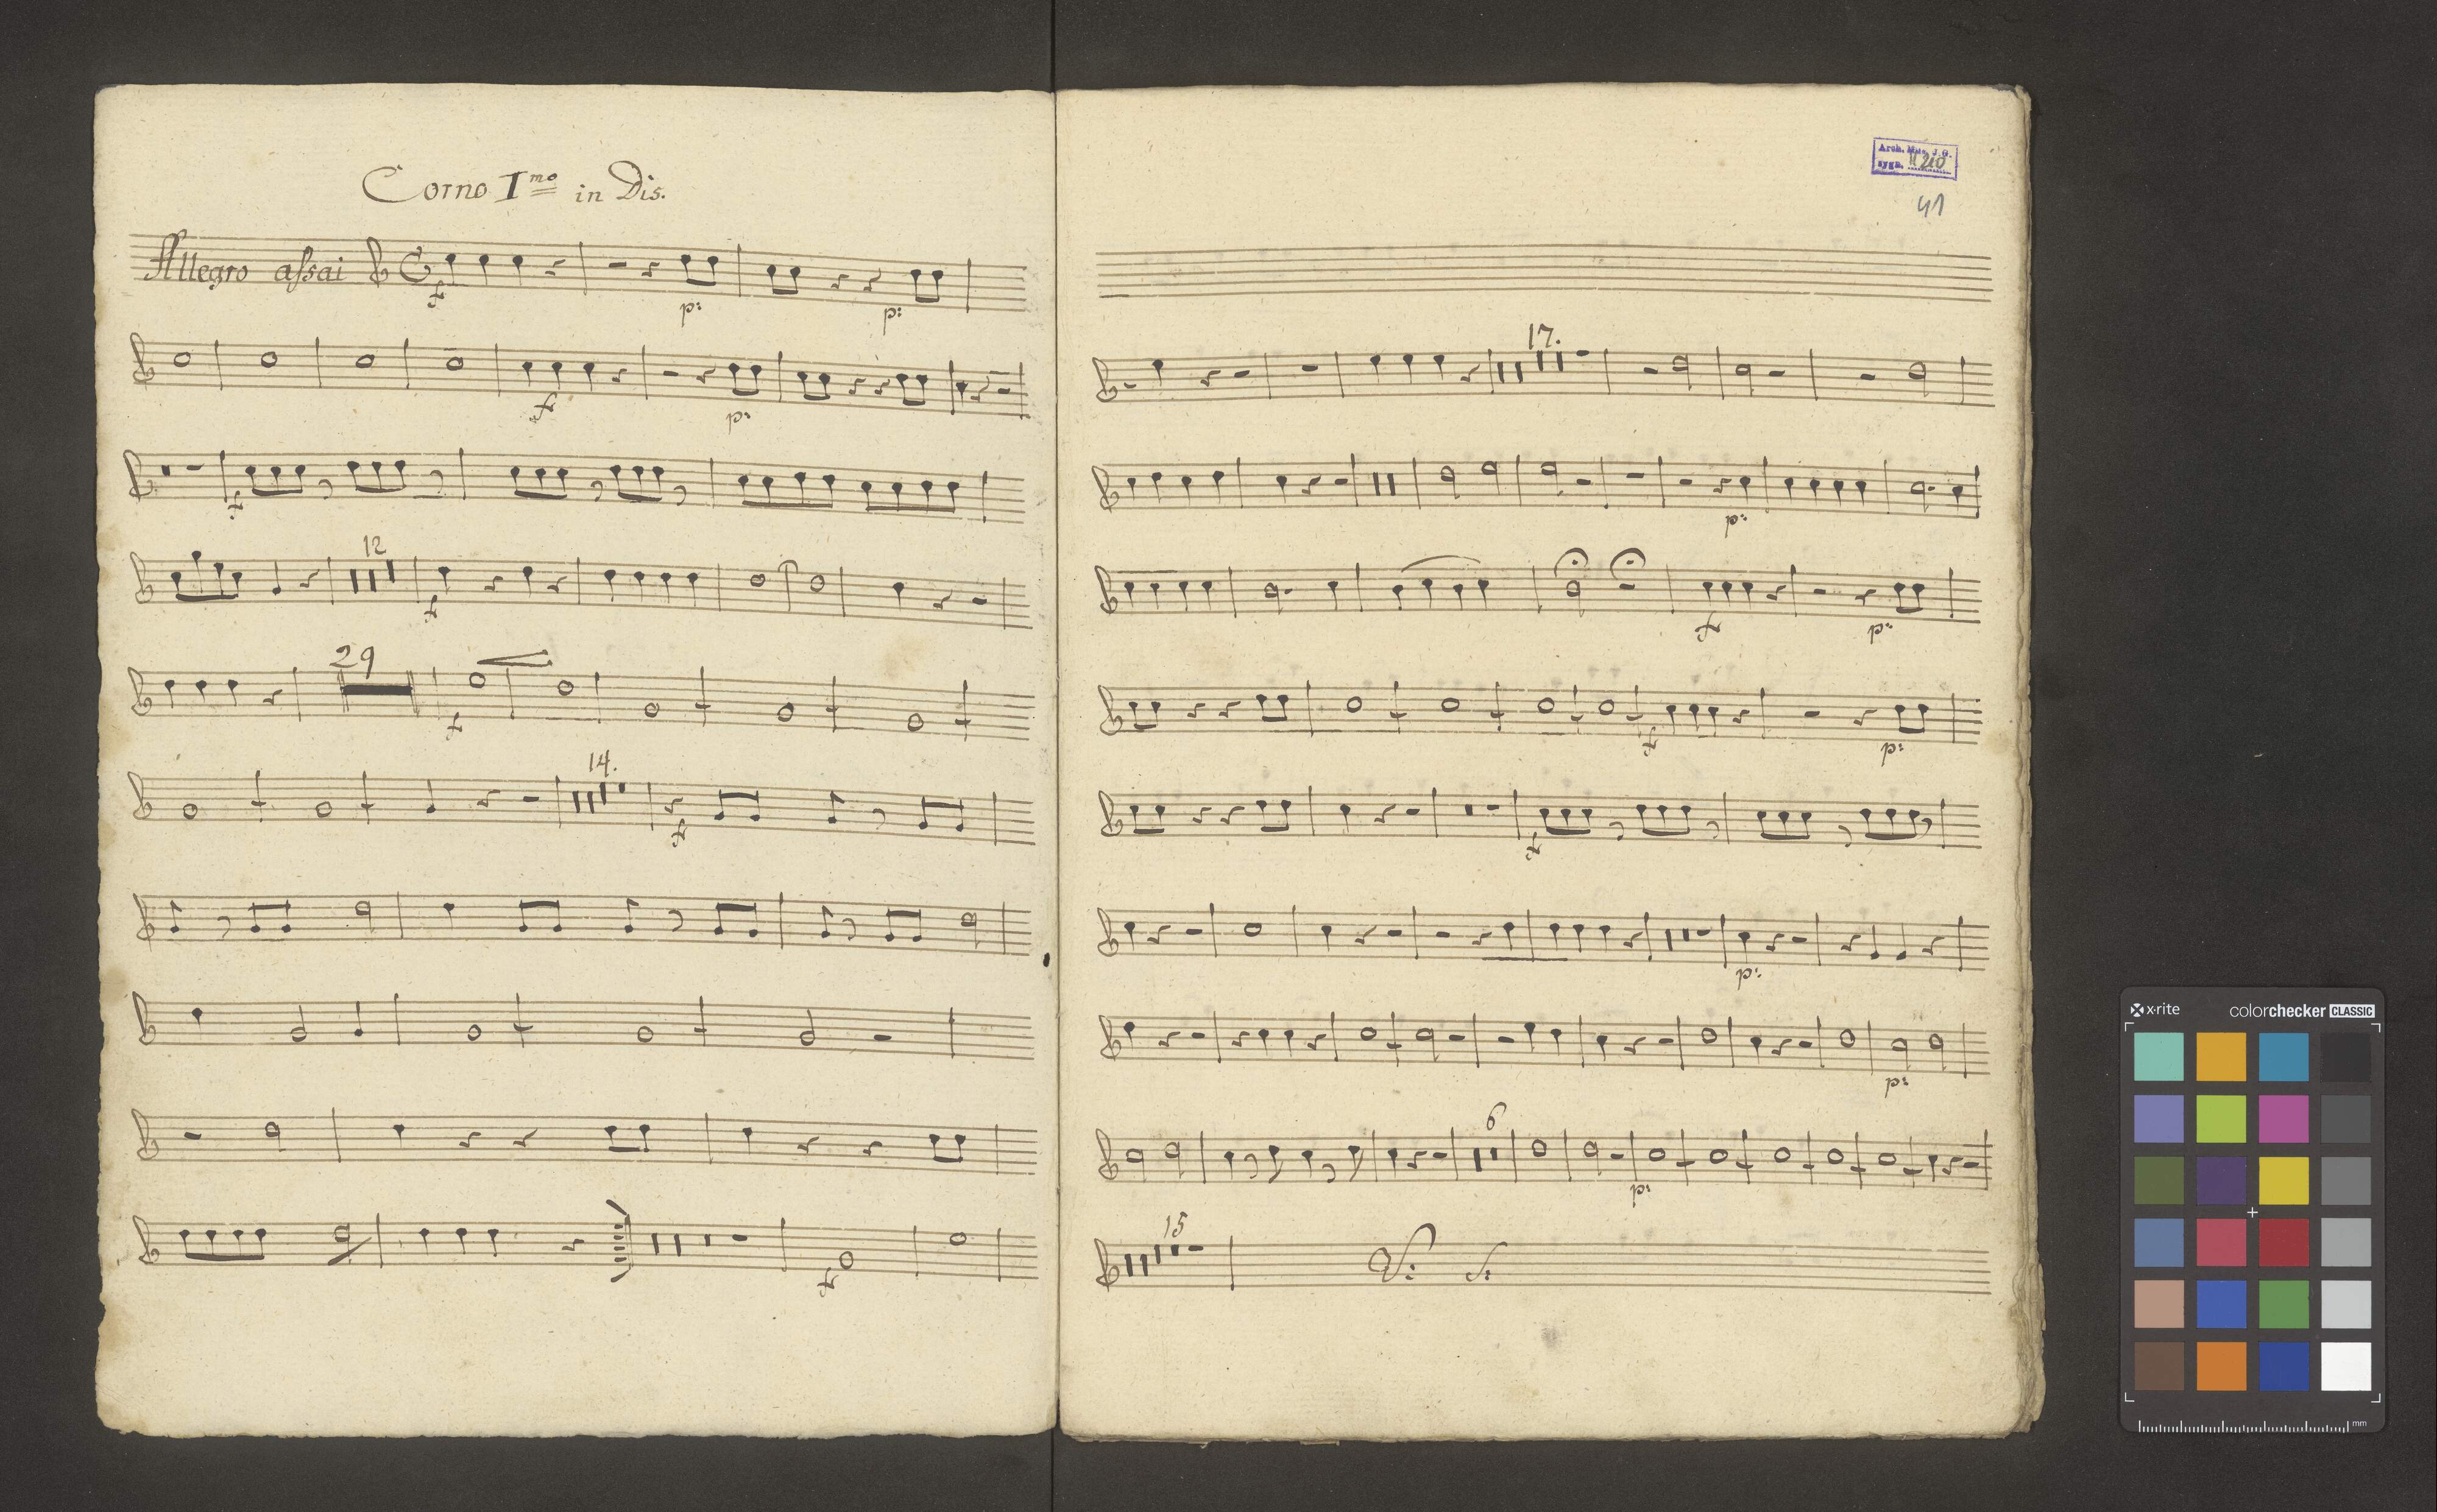 Corno I mo in Dis.
Allegro aſsai
f
p:
p:
f
p:
f
12
f
29
f
14.
f
f
Arch. Mus. J. G.
sygn. II 210
41
17.
p:
f
p:
f
p:
f
p:
p:
6
p:
15
V: S:
x·rite colorchecker CLASSIC
mm